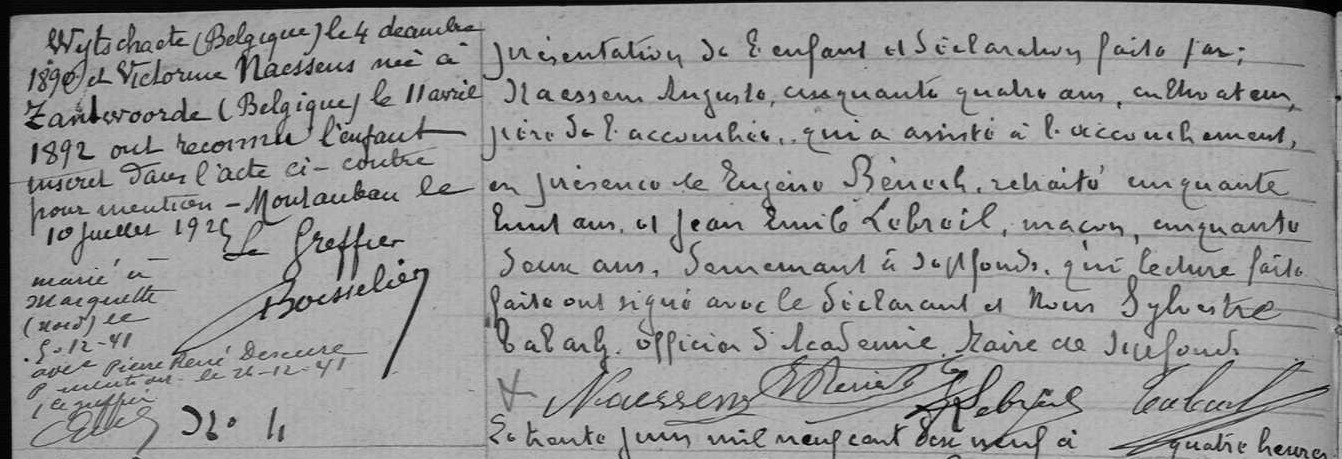 Wytschaete (Belgique) le 4 décembre
1890 et Victorine Naessens née à
Zantvoorde (Belgique) le 11 avril
1892 ont reconnu l'enfant
inscrit dans l'acte ci-contre
pour mention - Montauban le
10 juillet 192
Le Greffier
marié à
Marquette
(Nord) le
5-12-41
avec Pierre René
P mention le 26-12-41
le greffier
No 4
présentation de l'enfant et déclaration faite par:
Naessens Auguste, cinquante quatre ans, cultivateur,
père de l'accouchée, qui a assisté à l'accouchement,
en présence de Eugène retraité cinquante
huit ans, et Jean Emile maçon, cinquante
deux ans, demeurant à Septfonds, qui lecture faite
faite ont signé avec le déclarant et Nous Sylvestre
officier d'Académie, Maire de Septfonds
Naessens
Le trente juin mil neuf cent dix neuf à quatre heures